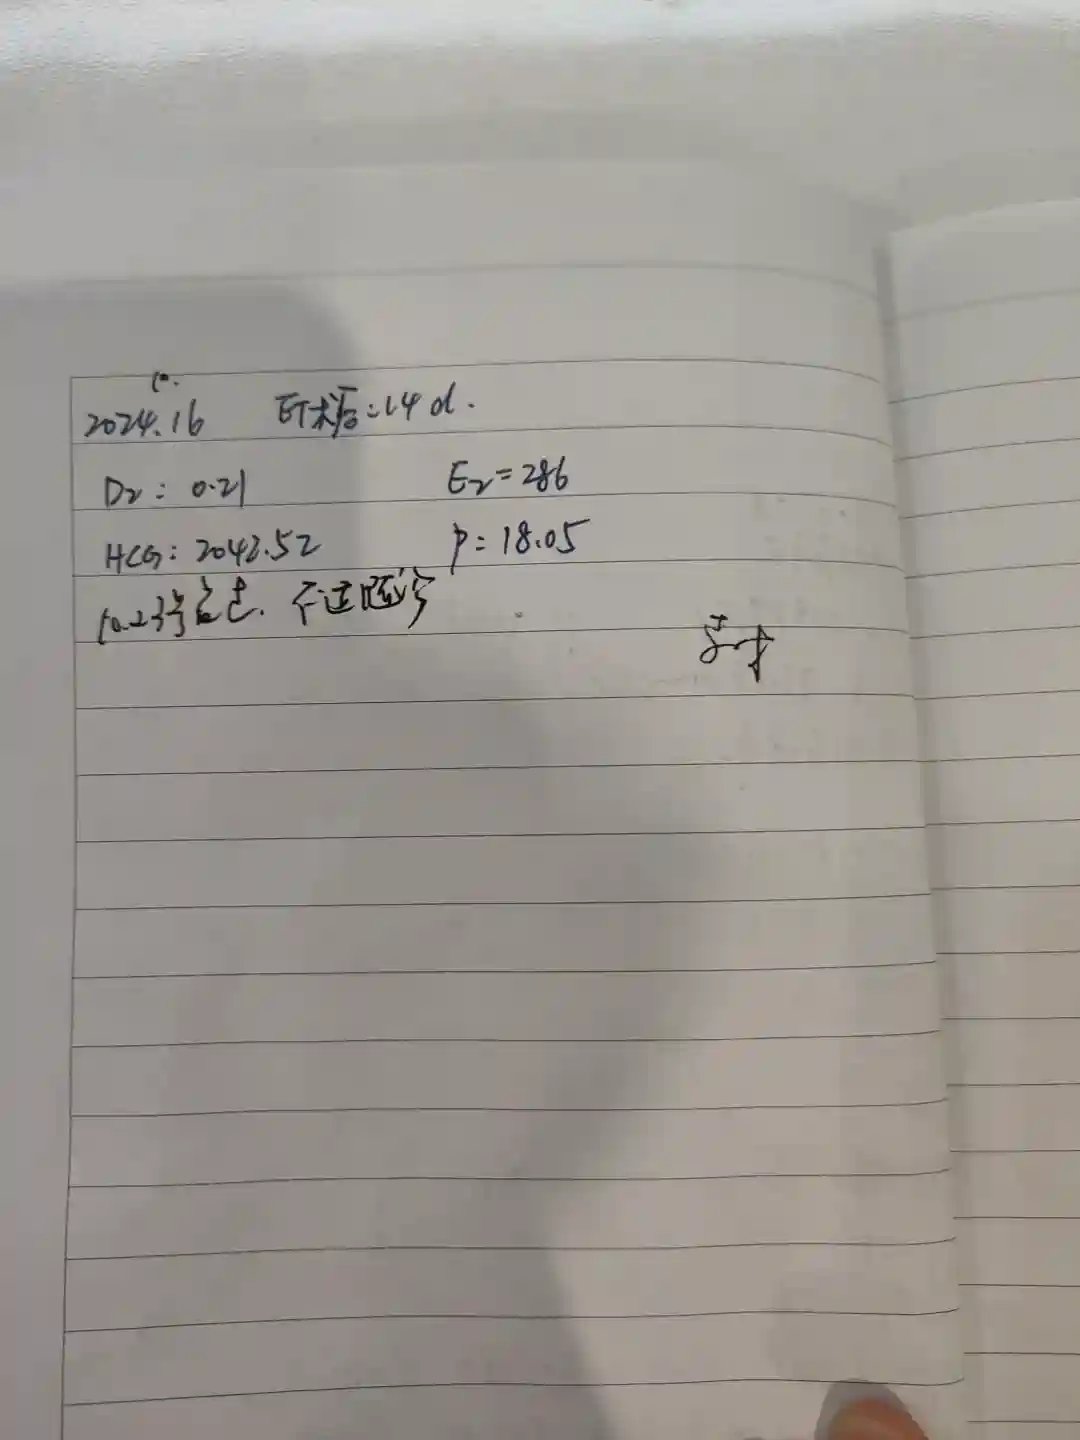 10.
2024.16 ET术后:14d.
D2: 0.21 E2=286
HCG: 2043.52 P: 18.05
10.23号复 不适随诊